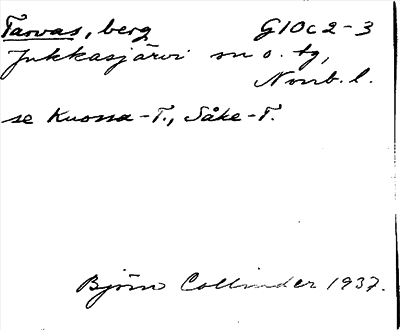 Tarvas, berg G10c2-3
Jukkasjärvi sn o. tg,
Norrb. l.
se Kuossa-T., Såke-T.
Björn Collinder 1937.